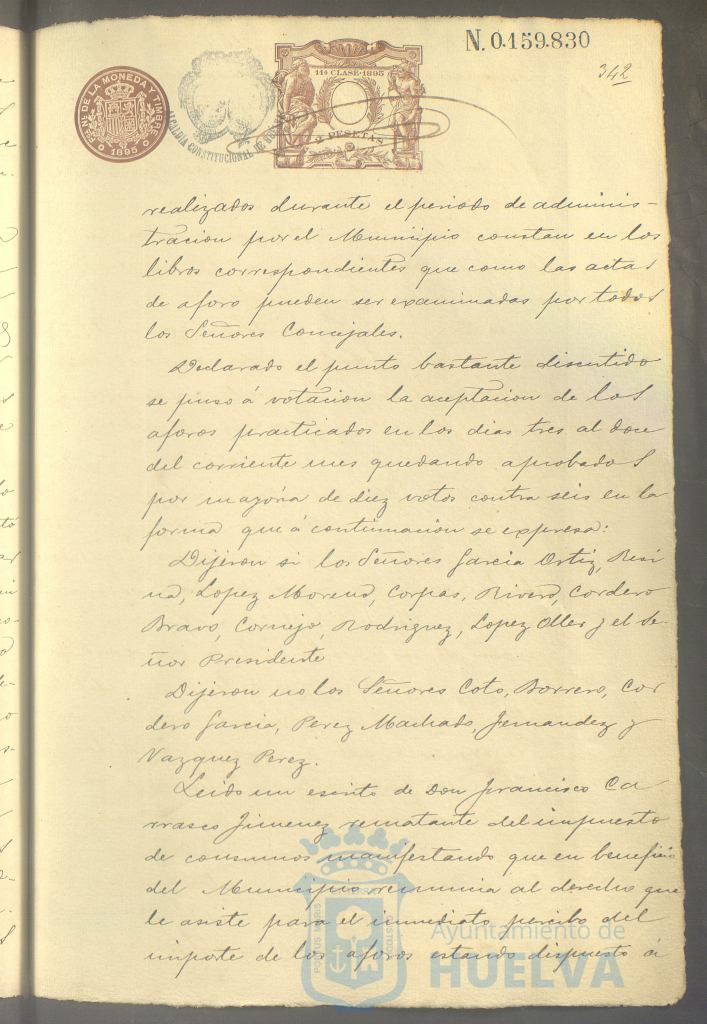 N. 0.159.830
342
FCA NAL DE LA MONEDA Y TIMBRE
1895
ALCALDIA CONSTITUCIONAL DE
11ª CLASE·1895
2 PESETAS
realizados durante el periodo de adminis-
tracion por el Municipio constan en los
libros correspondientes que como las actas
de aforo pueden ser examinadas por todos
los Señores Concejales.
Declarado el punto bastante discutido
se puso á votacion la aceptacion de los
aforos practicados en los dias tres al doce
del corriente mes quedando aprobados
por mayoria de diez votos contra seis en la
forma que á continuacion se expresa:
Dijeron si los Señores Garcia Ortiz, Resi
na, Lopez Moreno, Corpas, Rivero, Cordero
Bravo, Cornejo, Rodriguez, Lopez Oller y el Se-
ñor Presidente
Dijeron no los Señores Coto, Borrero, Cor
dero Garcia, Perez Machado, Fernandez y
Vazquez Perez.
Leido un escrito de Don Francisco Ca
rrasco Jimenez rematante del impuesto
de consumos manifestando que en beneficio
del Municipio renuncia al derecho que
le asiste para el inmediato percibo del
importe de los aforos estando dispuesto á
Ayuntamiento de
HUELVA